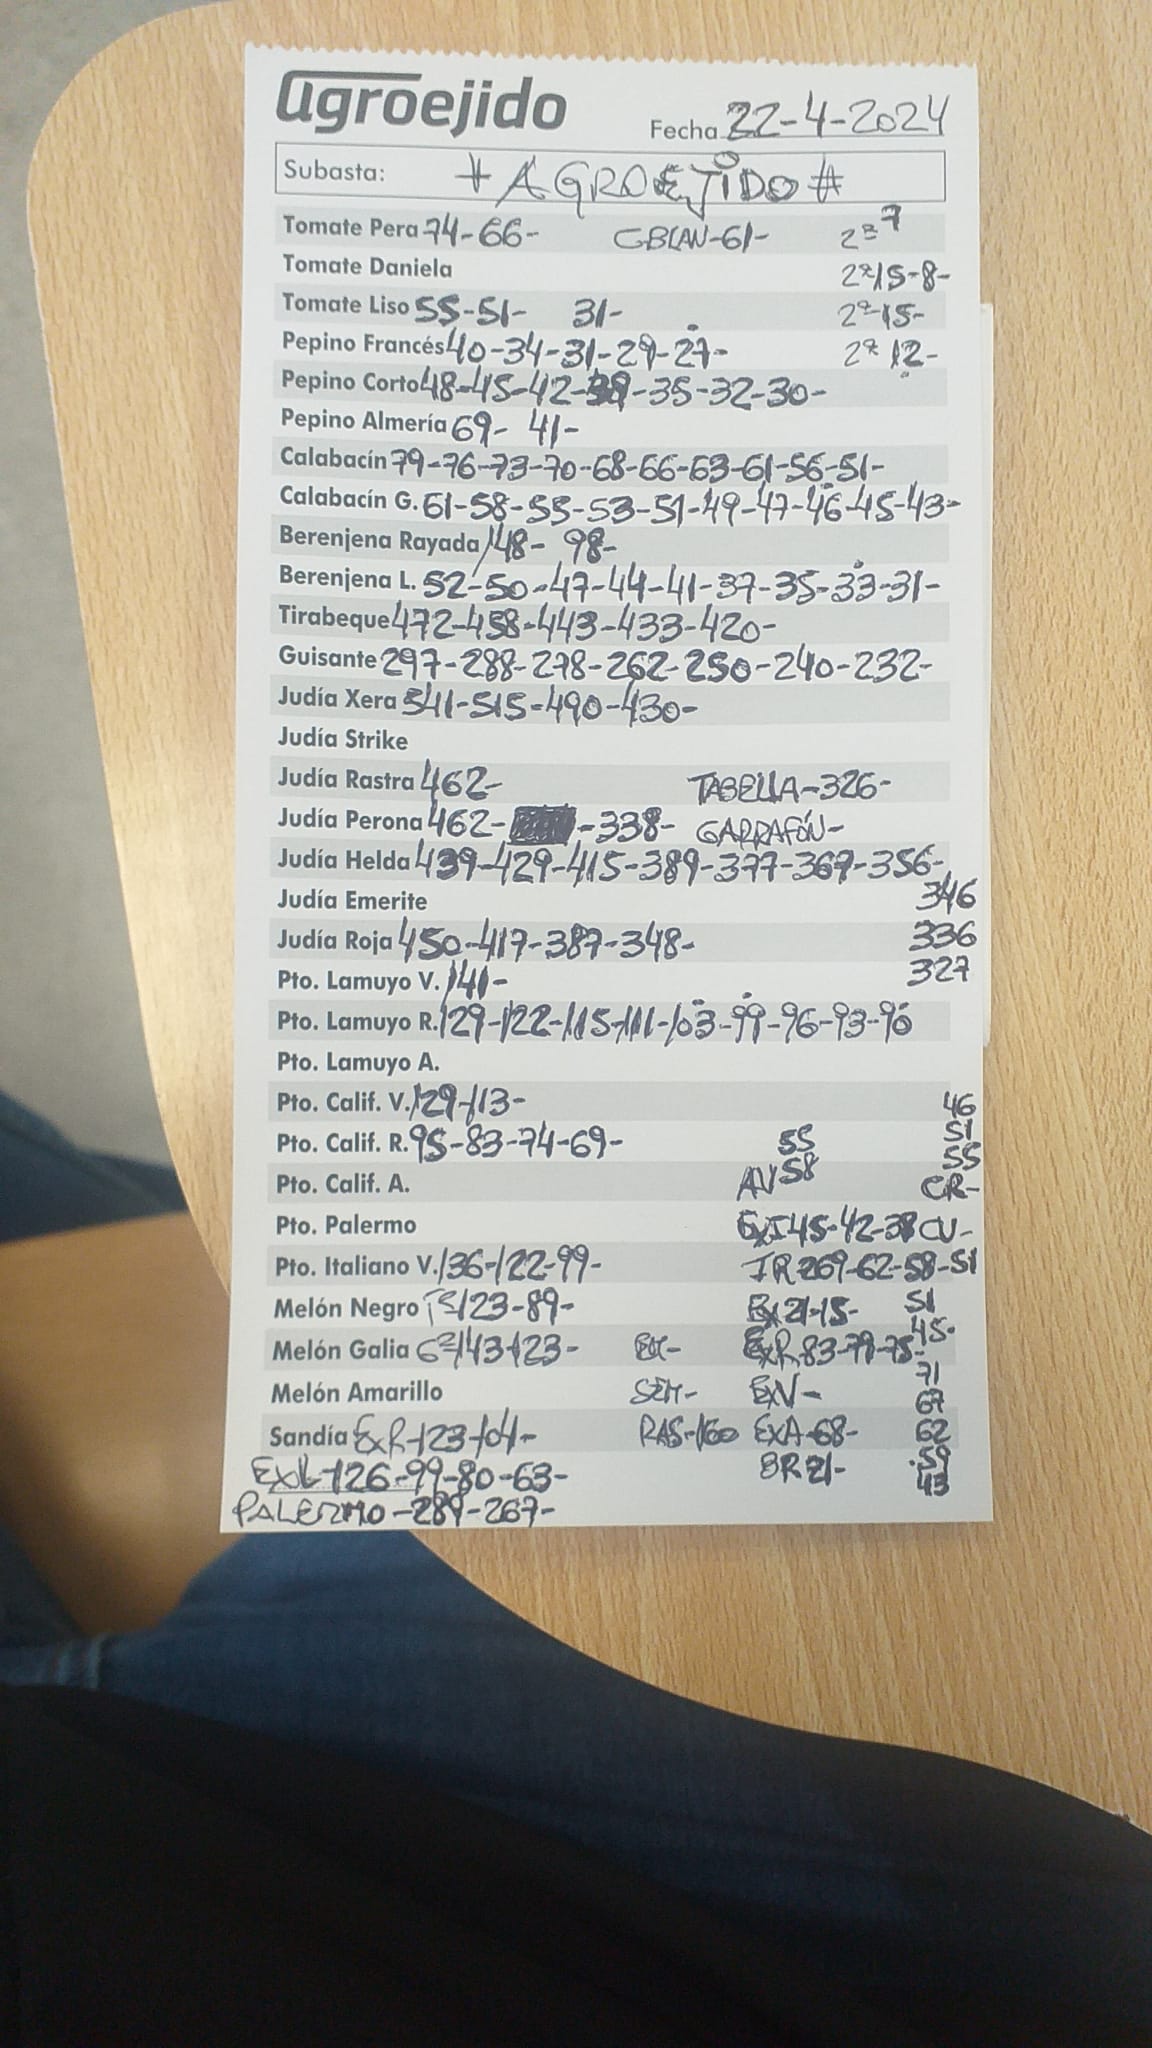 agroejido
Fecha 22-4-2024
Subasta: # AGROEJIDO #
Tomate Pera 74-66- CBLAN-61- 2ª 7
Tomate Daniela 2ª15-8-
Tomate Liso 55-51- 31- 2ª-15-
Pepino Francés 40-34-31-29-27- 2ª 12-
Pepino Corto 48-45-42-38-35-32-30-
Pepino Almería 69- 41-
Calabacín 79-76-73-70-68-66-63-61-56-51-
Calabacín G. 61-58-55-53-51-49-47-46-45-43-
Berenjena Rayada 148- 98-
Berenjena L. 52-50-47-44-41-37-35-33-31-
Tirabeque 472-458-443-433-420-
Guisante 297-288-278-262-250-240-232-
Judía Xera 541-515-490-430-
Judía Strike
Judía Rastra 462- TABELLA-326-
Judía Perona 462- -338- GARRAFÓN-
Judía Helda 439-429-415-389-377-367-356-
Judía Emerite 346
Judía Roja 450-417-387-348- 336
Pto. Lamuyo V. 141- 327
Pto. Lamuyo R. 129-122-115-111-103-99-96-93-90
Pto. Lamuyo A.
Pto. Calif. V. 129-113- 46
Pto. Calif. R. 95-83-74-69- 55 51
55
Pto. Calif. A. AV 58 CR-
Pto. Palermo ExI 45-42-38 CU-
Pto. Italiano V. 136-122-99- 269-62-58-51
Melón Negro 123-89- Ex 21-15- 51
45-
Melón Galia 6ª143-123- ExR 83-79-75-
71
Melón Amarillo SEM- ExV- 67
Sandía ExR-123-104- RAS-160 ExA-68- 62
126-99-80-63- 21- 59
43
PALERMO-289-267-